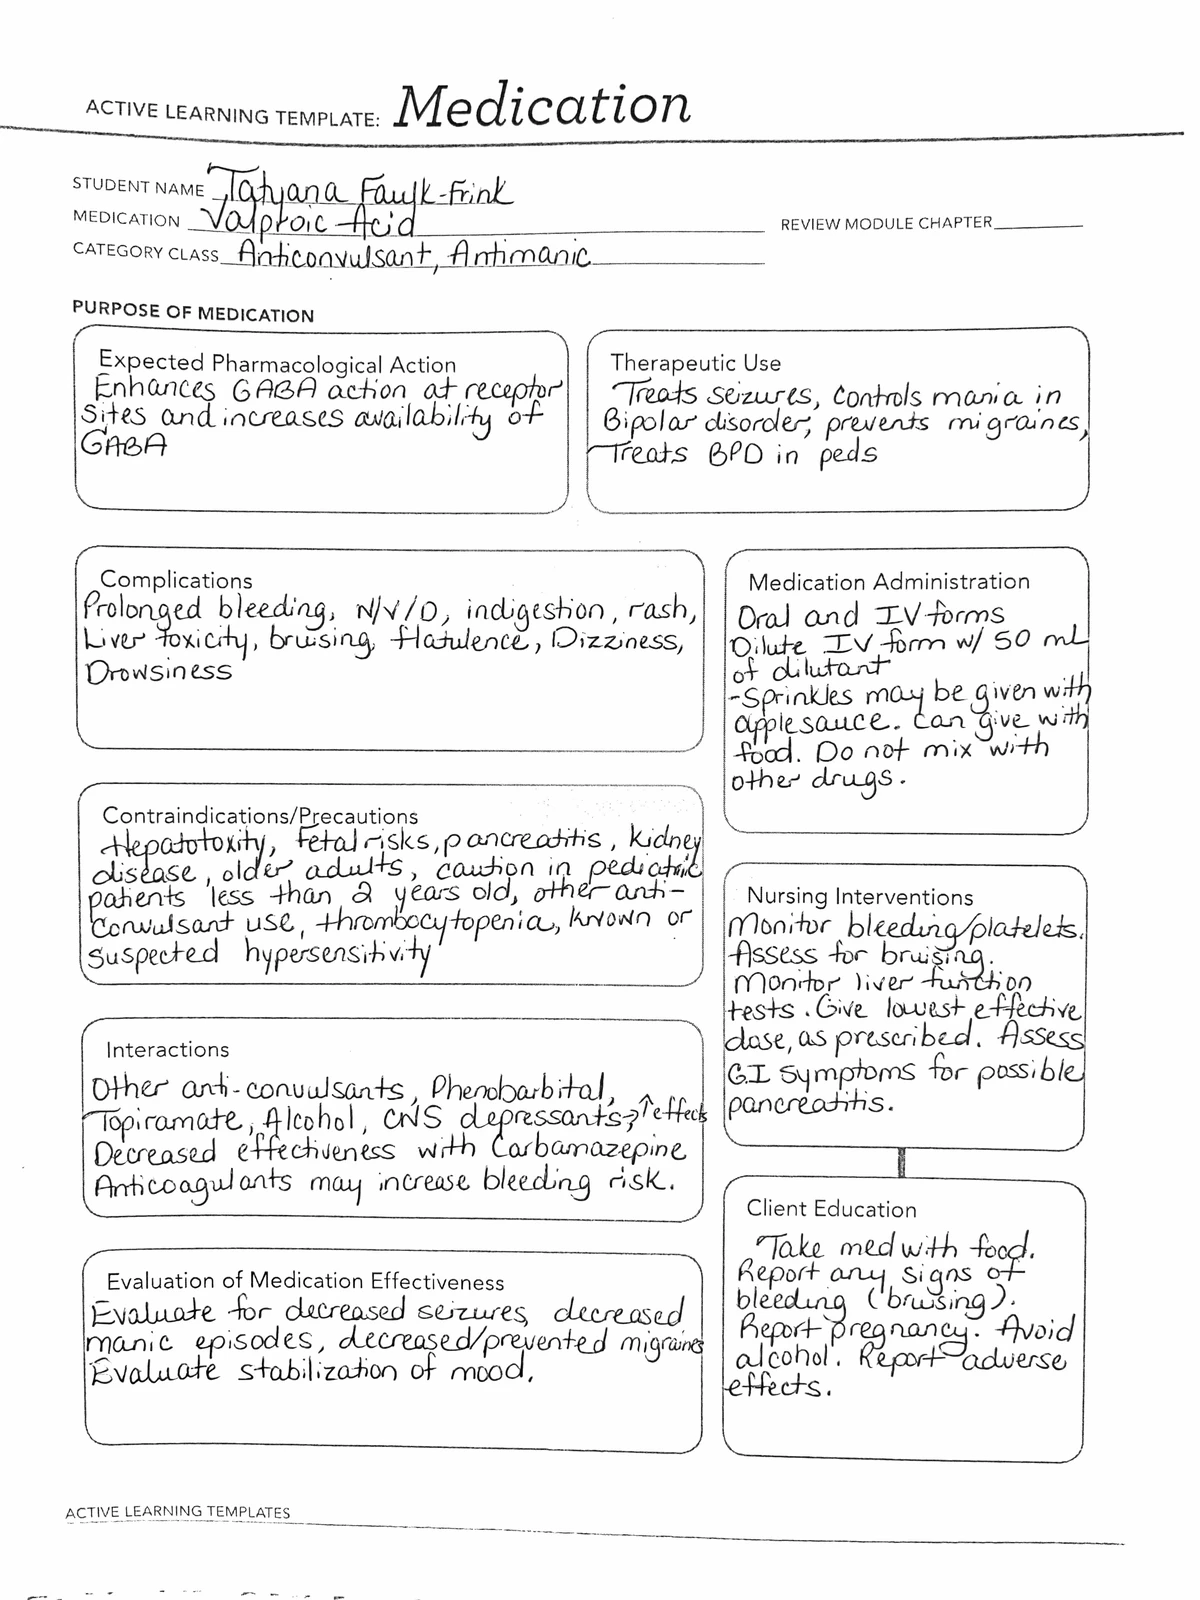 ACTIVE LEARNING TEMPLATE: Medication
STUDENT NAME Tatyana Faulk-Frink
MEDICATION Valproic Acid
REVIEW MODULE CHAPTER
CATEGORY CLASS Anticonvulsant, Antimanic
PURPOSE OF MEDICATION
Expected Pharmacological Action
Enhances GABA action at receptor
sites and increases availability of
GABA
Therapeutic Use
Treats seizures, controls mania in
Bipolar disorder, prevents migraines,
Treats BPD in peds
Complications
Prolonged bleeding, N/V/D, indigestion, rash,
Liver toxicity, bruising, flatulence, Dizziness,
Drowsiness
Medication Administration
Oral and IV forms
Dilute IV form w/ 50 mL
of dilutant
-Sprinkles may be given with
applesauce. Can give with
food. Do not mix with
other drugs.
Contraindications/Precautions
Hepatotoxity, Fetal risks, pancreatitis, Kidney
disease, older adults, caution in pediatric
patients less than 2 years old, other anti-
convulsant use, thrombocytopenia, known or
suspected hypersensitivity
Nursing Interventions
Monitor bleeding/platelets.
Assess for bruising.
Monitor liver function
tests. Give lowest effective
dose, as prescribed. Assess
G.I symptoms for possible
pancreatitis.
Interactions
Other anti-convulsants, Phenobarbital,
Topiramate, Alcohol, CNS depressants→↑effects
Decreased effectiveness with Carbamazepine
Anticoagulants may increase bleeding risk.
Client Education
Take med with food.
Report any signs of
bleeding (bruising).
Report pregnancy. Avoid
alcohol. Report adverse
effects.
Evaluation of Medication Effectiveness
Evaluate for decreased seizures, decreased
manic episodes, decreased/prevented migraines
Evaluate stabilization of mood.
ACTIVE LEARNING TEMPLATES